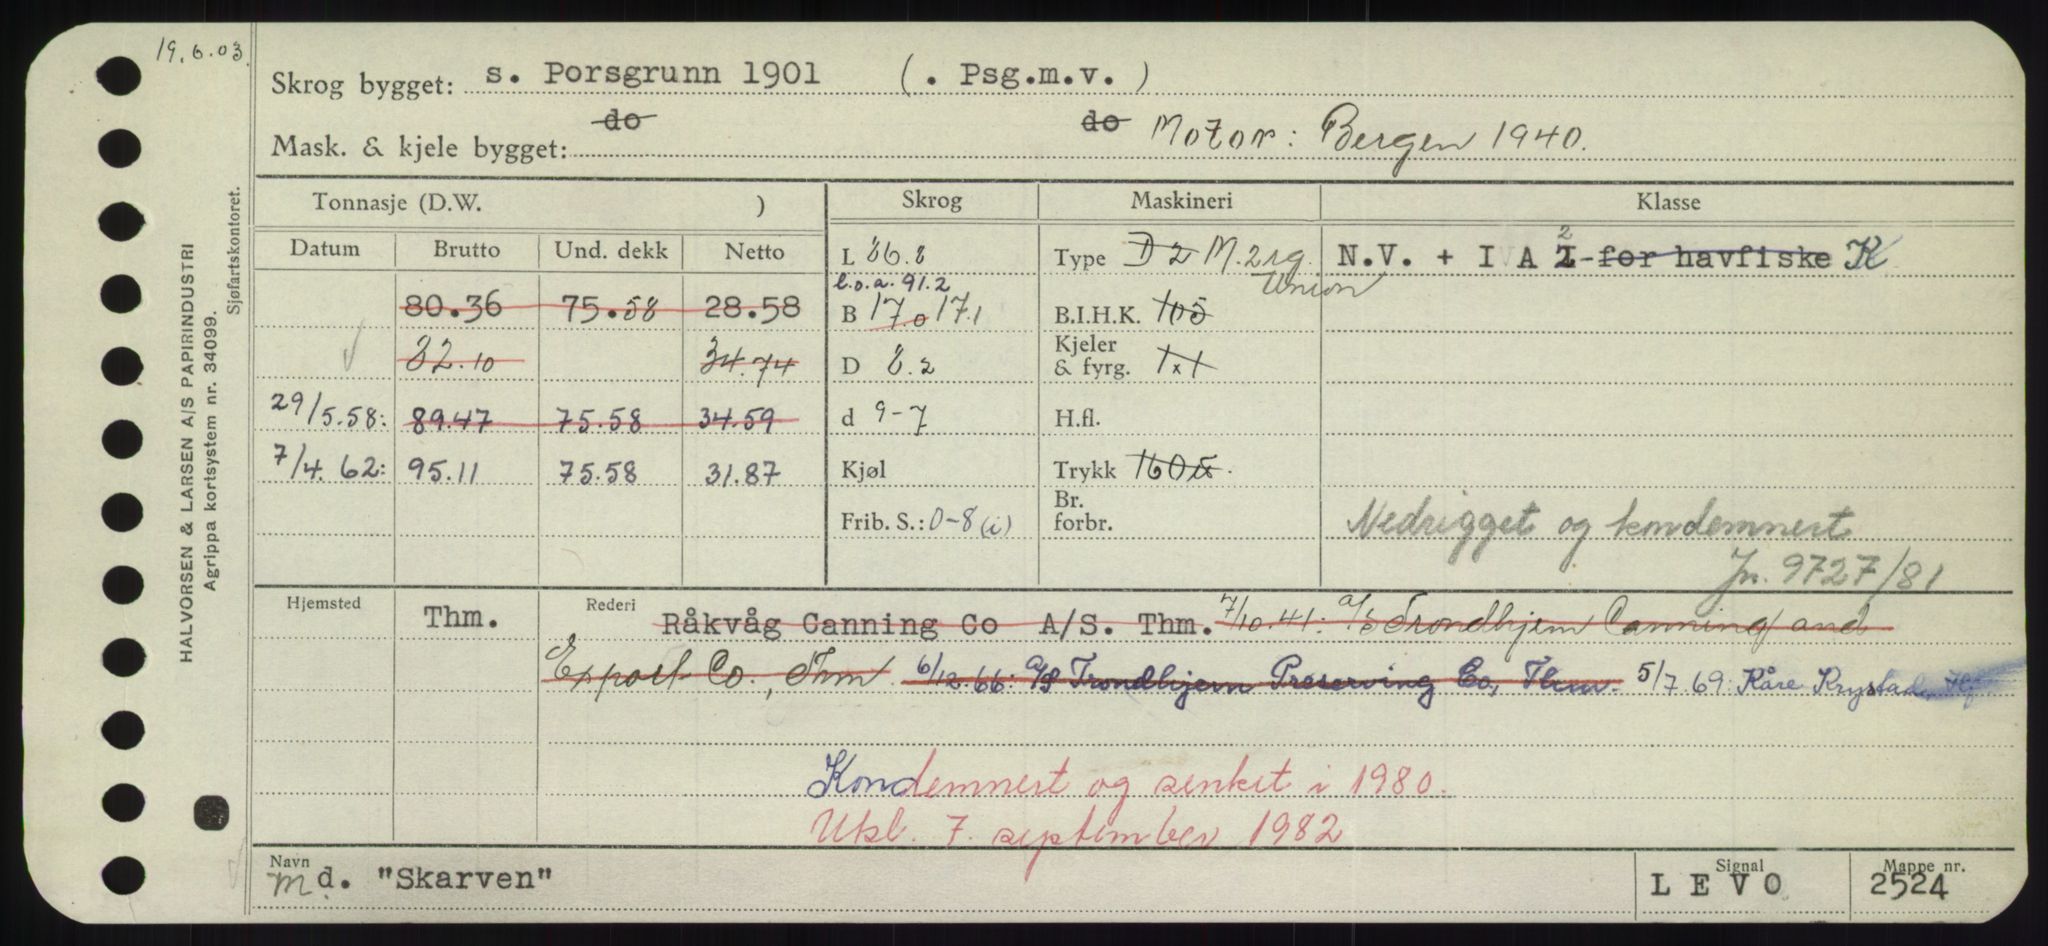 19.6.03.
Skrog bygget: s. Porsgrunn 1901 (. Psg.m.v. )
do do
Mask. & kjele bygget: Motor: Bergen 1940.
Tonnasje (D.W. ) Skrog Maskineri Klasse
Datum Brutto Und. dekk Netto
L 86.8 Type D 2 M. 2 sg. Union N.V. + I A I 2 for havfiske K
l.o.a. 91.2
80.36 75.58 28.58 B 17.0 17.1 B.I.H.K. 105
82.10 34.74 D 8.2 Kjeler & fyrg. 1x1
29/5.58: 89.47 75.58 34.59 d 9-7 H.fl.
7/4.62: 95.11 75.58 31.87 Kjøl Trykk 160
Frib. S.: 0-8 (i) Br. forbr.
Nedrigget og kondemnert
Jn. 9727/81
Hjemsted Thm. Rederi Råkvåg Canning Co A/S. Thm. 7/10.41: a/s Trondhjem Canning and
Export Co., Thm 6/12.66: A/S Trondhjem Preserving Co, Thm. 5/7.69: Kåre Krystad,
Kondemnert og senket i 1980.
Utsl. 7. september 1982
Navn Signal Mappe nr.
M d. "Skarven" L E V O 2524
HALVORSEN & LARSEN A/S PAPIRINDUSTRI
Agrippa kortsystem nr. 34099.
Sjøfartskontoret.